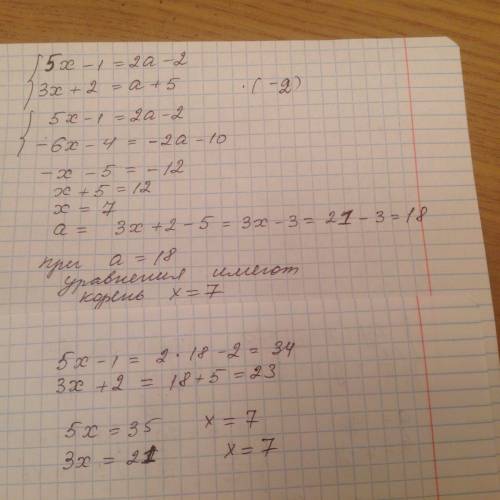 5x - 1 = 2a - 2
3x + 2 = a + 5 ·(-2)
5x - 1 = 2a - 2
-6x - 4 = -2a - 10
-x - 5 = -12
x + 5 = 12
x = 7
a = 3x + 2 - 5 = 3x - 3 = 21 - 3 = 18
при a = 18
уравнения имеют
корень x = 7
5x - 1 = 2 · 18 - 2 = 34
3x + 2 = 18 + 5 = 23
5x = 35 x = 7
3x = 21 x = 7